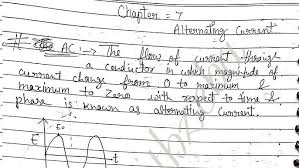 Chapter = 7
Alternating Current
# AC :→ The flow of current through
a conductor in which magnitude of
current change from 0 to maximum &
maximum to zero with respect to time &
phase is known as alternating current.
E₀
E
t